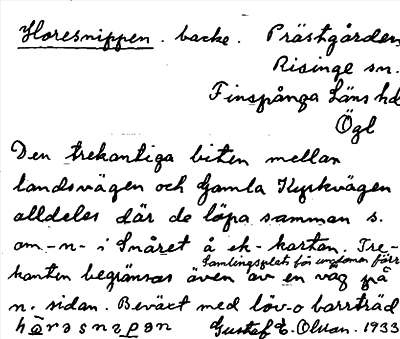 Horesnippen. backe. Prästgården
Risinge sn.
Finspånga Läns hd
Ögl
Den trekantiga biten mellan
landsvägen och Gamla Kyrkvägen
alldeles där de löpa samman s.
om -n- i Snåret å ek-kartan. Tre-
Samlingsplats för ungdomen förr
kanten begränsas även av en väg på
n. sidan. Beväxt med löv- o barrträd
Gustaf E. Olson. 1933